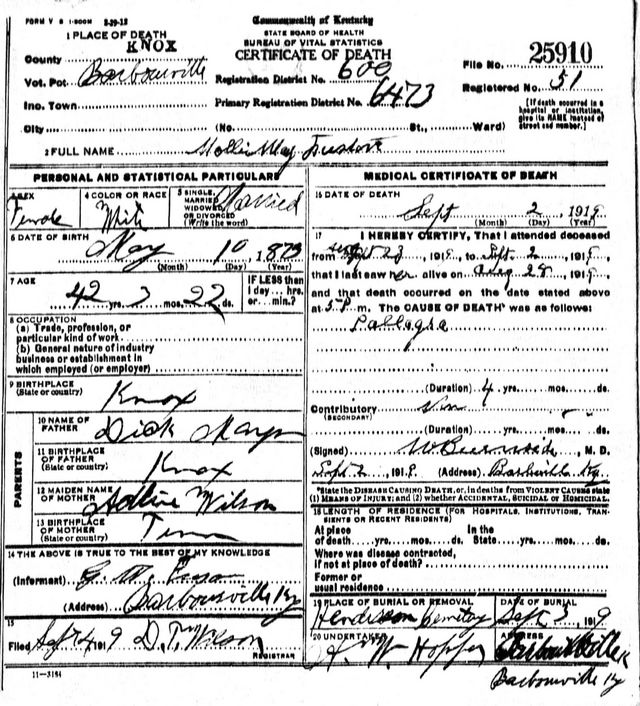 FORM V S 1-500M 8-29-18
Commonwealth of Kentucky
STATE BOARD OF HEALTH
BUREAU OF VITAL STATISTICS
CERTIFICATE OF DEATH
1 PLACE OF DEATH
County KNOX
Vot. Pct Barbourville
Inc. Town
City (No. St., Ward)
Registration District No. 600
Primary Registration District No. 6473
File No. 25910
Registered No. 51
[If death occurred in a hospital or institution, give its NAME instead of street and number.]
2 FULL NAME Mollie May
PERSONAL AND STATISTICAL PARTICULARS
3 SEX Female
4 COLOR OR RACE White
5 SINGLE, MARRIED, WIDOWED OR DIVORCED (Write the word) Married
6 DATE OF BIRTH May 10, 187
(Month) (Day) (Year)
7 AGE 42 yrs. 3 mos. 22 ds.
IF LESS than 1 day... hrs. or... min.?
8 OCCUPATION
(a) Trade, profession, or particular kind of work
(b) General nature of industry business or establishment in which employed (or employer)
9 BIRTHPLACE (State or country) Knox
PARENTS
10 NAME OF FATHER Dick
11 BIRTHPLACE OF FATHER (State or country) Knox
12 MAIDEN NAME OF MOTHER Wilson
13 BIRTHPLACE OF MOTHER (State or country) Tenn
14 THE ABOVE IS TRUE TO THE BEST OF MY KNOWLEDGE
(Informant) G. W.
(Address) Barbourville Ky
15
Filed Sept 4 1919 D. T. Wilson
REGISTRAR
11-3184
MEDICAL CERTIFICATE OF DEATH
16 DATE OF DEATH
Sept 2 1919
(Month) (Day) (Year)
17 I HEREBY CERTIFY, That I attended deceased
from 23, 1919, to Sept. 2, 1919,
that I last saw her alive on Aug 28, 1919,
and that death occurred on the date stated above
at 5 P m. The CAUSE OF DEATH* was as follows:
Pallegra
(Duration) 4 yrs. mos. ds.
Contributory
(SECONDARY)
(Duration) yrs. mos. ds.
(Signed) W Burnside, M. D.
Sept. 2, 1919. (Address) Ky
*State the DISEASE CAUSING DEATH, or, in deaths from VIOLENT CAUSES state
(1) MEANS OF INJURY; and (2) whether ACCIDENTAL, SUICIDAL or HOMICIDAL
18 LENGTH OF RESIDENCE (FOR HOSPITALS, INSTITUTIONS, TRANSIENTS OR RECENT RESIDENTS)
At place of death yrs. mos. ds. In the State yrs. mos. ds.
Where was disease contracted,
if not at place of death?
Former or
usual residence
19 PLACE OF BURIAL OR REMOVAL Cemetery
DATE OF BURIAL Sept 3 1919
20 UNDERTAKER W Hopper
ADDRESS Barbourville K
Barbourville Ky